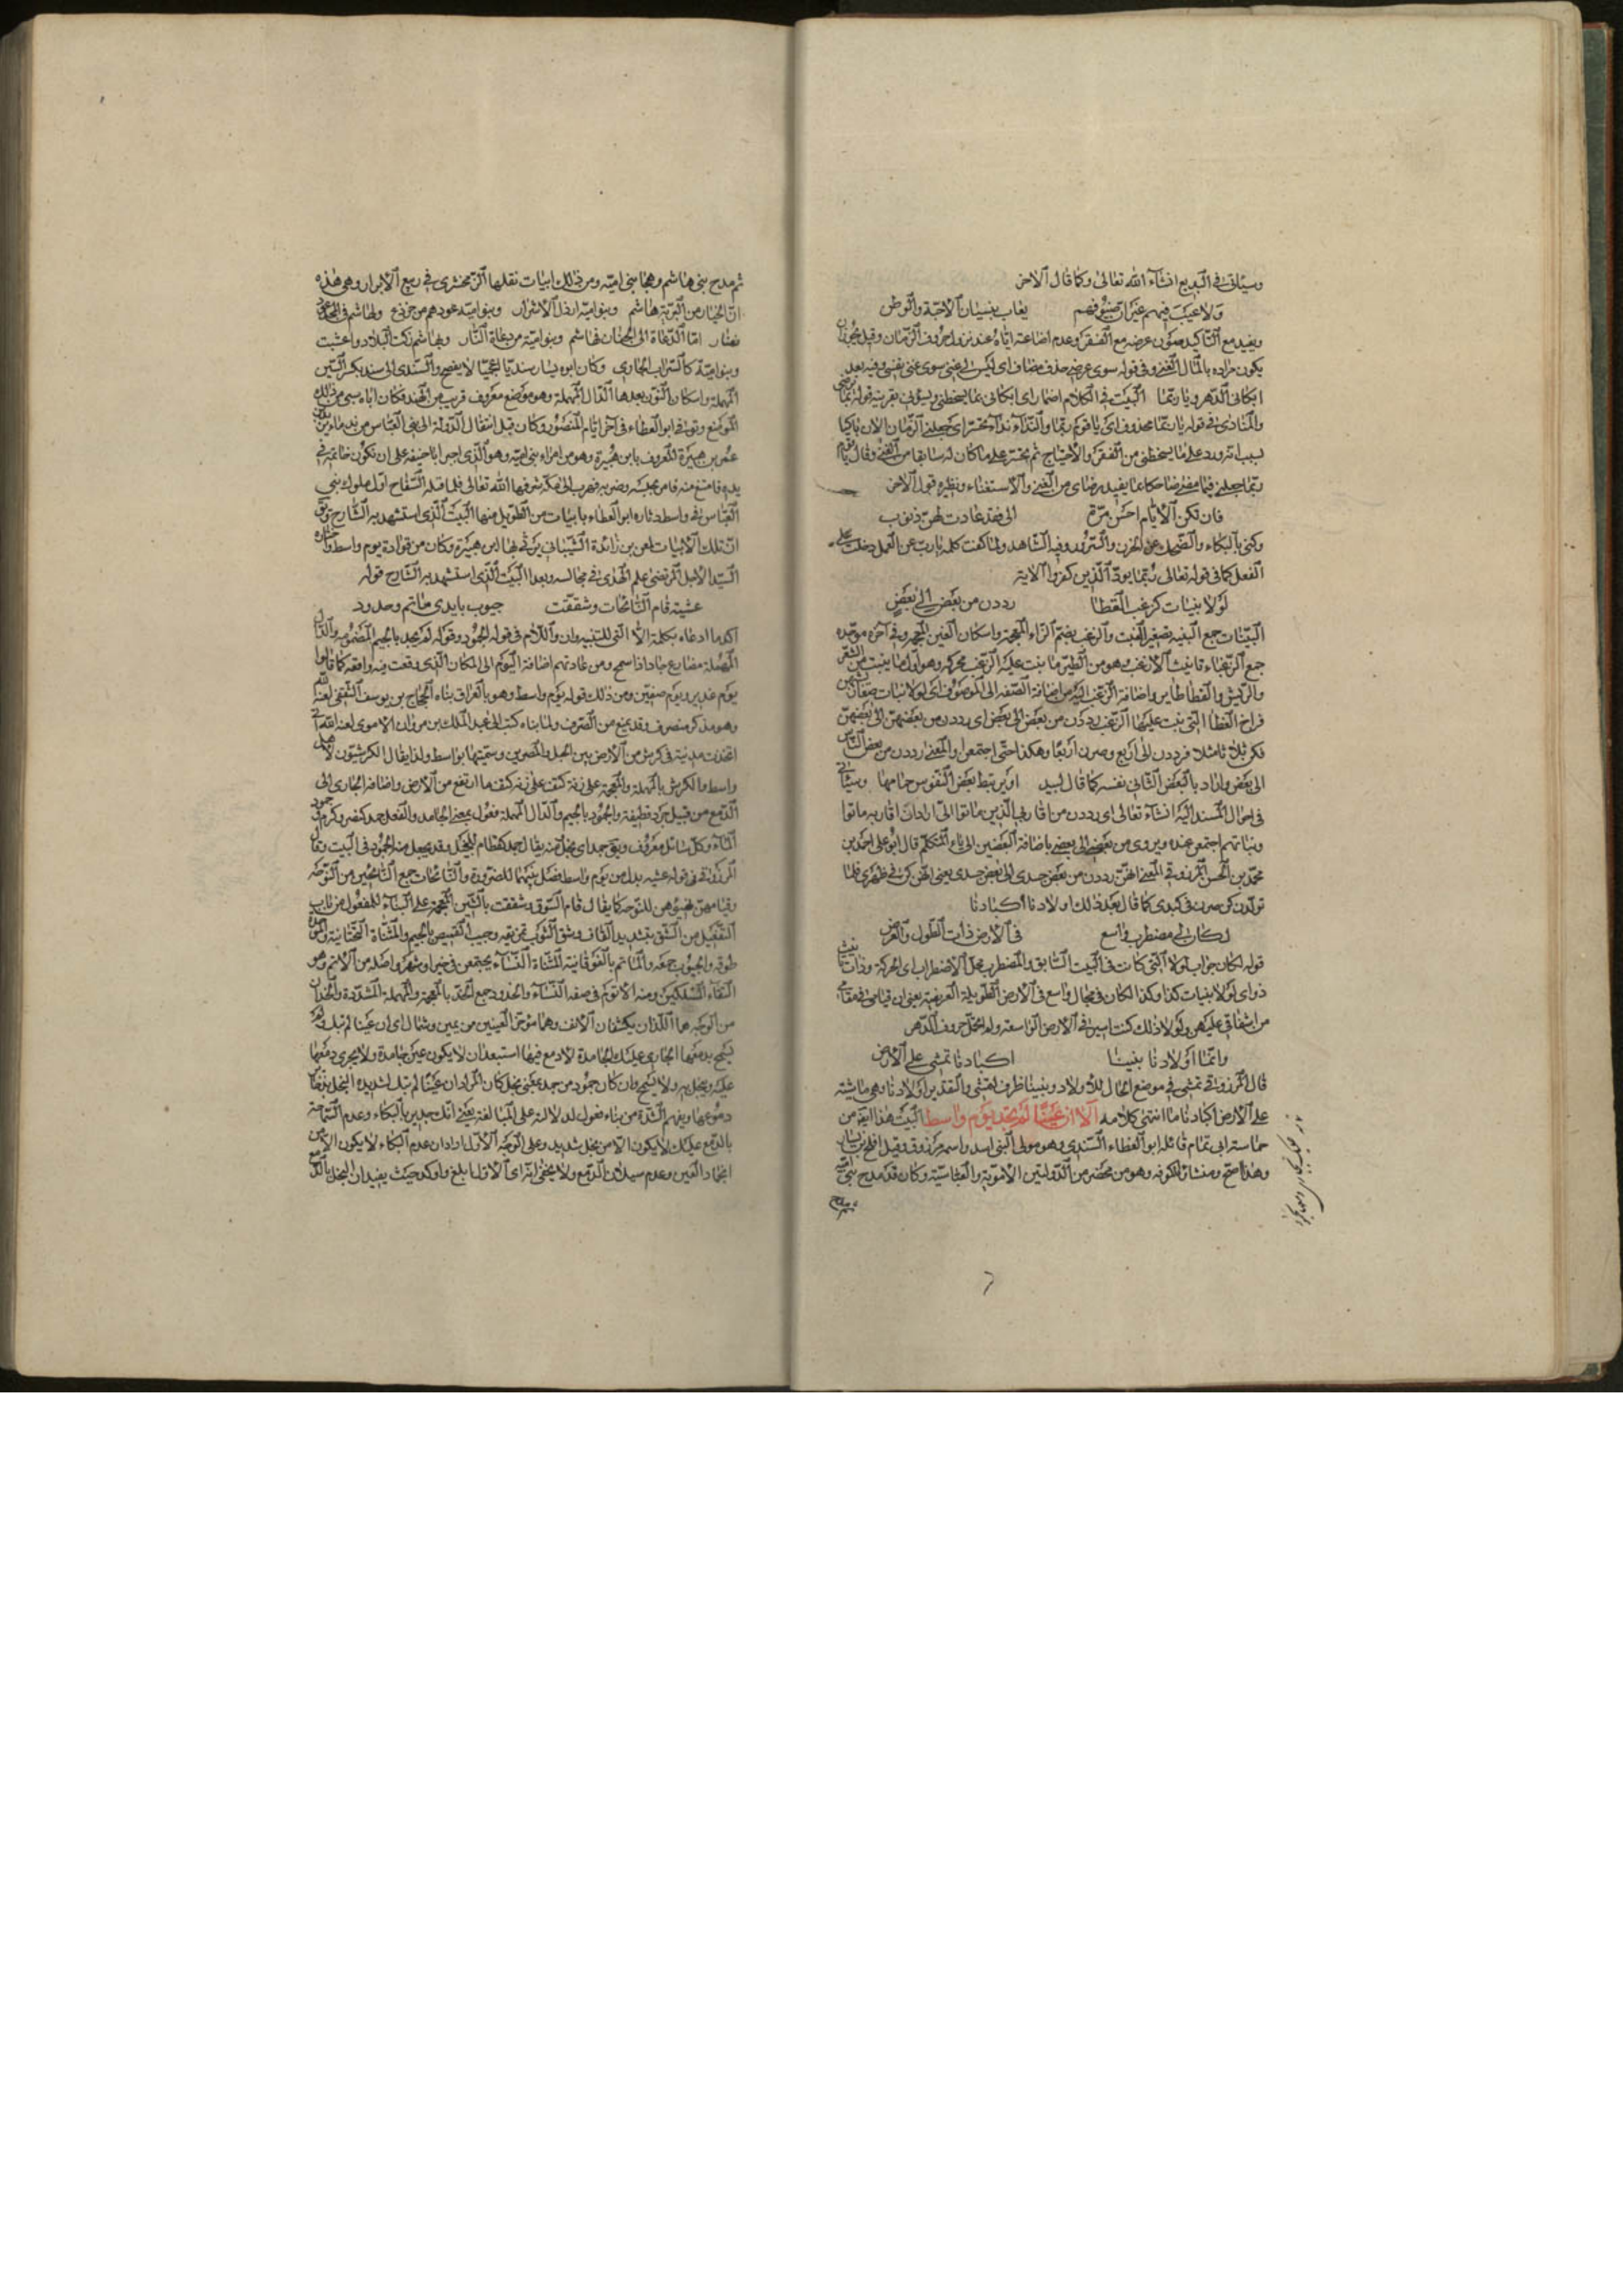 وسيأتى فى البديع انشاء الله تعالى وكما قال الاخر
ولا عيب فيهم غير ان ضيوفهم يعاب بنسيان الاحبة والوطن
ويفيد مع التأكيد صون عرضه مع الفقر وعدم اضاعته اياه عند نزول حروف الزمان وقيل يجوز ان
يكون مراده بالمال الغنى وفى قوله سوى عرضه حذف مضاف اى ليس لى غنى سوى غنى نفسى وفيه بعد
ابكانى الدهر ويا ربما البيت فى الكلام اضمار اى ابكانى بما يسخطنى ويسؤنى بقرينة قوله بما يرضى
والمنادى فى قوله يا ربما محذوف اى يا قوم ربما والنداء نداء تحسر اى جعلنى الزمان الان باكيا
بسبب انه ورد على ما يسخطنى من الفقر والاحتياج ثم تحسر على ما كان له سابقا من الغنى وقال يا قوم
ربما جعلنى فيما مضى ضاحكا بما يفيد رضاى من الغنى والاستغناء ونظيره قول الاخر
فان تكن الايام احسن مرة الى فقد عادت لهن ذنوب
وكنى بالبكاء والضحك عن الحزن والسرور وفيه الشاهد ولما كفت كلمة يا رب عن العمل دخلت على
الفعل كما فى قوله تعالى ربما يود الذين كفروا الاية
لولا بنيات كزغب القطا رددن من بعض الى بعض
البنيات جمع البنية تصغير البنت والزغب بضم الزاء المعجمة واسكان الغين المعجمة وفى آخره موحدة
جمع الزغباء تانيث الازغب وهو من الطير ما نبت عليه الزغب محركة وهو اول ما ينبت من الشعر
والريش والقطا طاير واضافة الزغب اليه من اضافة الصفة الى الموصوف اى لولا بنيات صغار كشبهن
فراخ القطا التى نبت عليها الزغب رددن من بعض الى بعض اى رددن من بعضهن الى بعضهن
فكن ثلاثا مثلا فرددن الى اربع وصرن اربعا وهكذا حتى اجتمعن والمعنى رددن من بعض الناس
الى بعض واراد بالبعض الثانى نفسه كما قال لبيد او يرتبط بعض النفوس حمامها وسيأتى
فى احوال المسند اليه انشاء تعالى اى رددن من اقاربى الذين ماتوا الى اراد ان اقاربه ماتوا
وبناتهم اجتمعن عنده ويروى من بعضى الى بعضى باضافة البعضين الى ياء المتكلم قال ابو على احمد بن
محمد بن الحسن المرزوقى المعنى انهن رددن من بعض جسدى الى بعض جسدى يعنى انهن كن فى ظهرى فلما
تولدن كن صرن فى كبدى كما قال بعد ذلك اولادنا اكبادنا
لكان لى مضطرب واسع فى الارض ذات الطول والعرض
قوله لكان جواب لولا التى كانت فى البيت السابق والمضطرب محل الاضطراب اى الحركة وذات تانيث
ذو اى لولا بنيات كذا وكذا لكان فى مجال واسع فى الارض الطويلة العريضة يعنى ان قيامى فى مقامى
من اشفاقى عليهن ولولا ذلك كنت اسير فى الارض الواسعة ولم اتحمل حروف الدهر
وانما اولادنا بيننا اكبادنا تمشى على الارض
قال المرزوقى تمشى فى موضع الحال للاولاد وبيننا ظرف لتمشى والتقدير اولادنا وهى ماشية
على الارض اكبادنا ما انتهى كلامه الا ان عينا لم تجد يوم واسط البيت هذا ايضا من
حماسة ابى تمام قائله ابو العطاء السندى وهو مولى لبنى اسد واسمه مرزوق وقيل افلح بن يسار
وهذا اصح ومنشاؤه الكوفة وهو من مخضرمى الدولتين الاموية والعباسية وكان قد مدح بنى امية
ثم مدح بنى هاشم وهجا بنى امية ومن ذلك ابيات نقلها الزمخشرى فى ربيع الابرار وهى هذه
ان الخيار من البرية هاشم وبنو امية ارذل الاشرار وبنو امية عودهم من خروع ولهاشم فى المجد عود
نضار اما الدعاة الى الجنان فهاشم وبنو امية من دعاة النار وبهاشم زكت البلاد واعشبت
وبنو امية كالسراب الجارى وكان ابوه يسار سنديا اعجميا لا يفصح والسندى الى سند بكسر السين
المهملة واسكان النون بعدها الدال المهملة وهو موضع معروف قريب من الهند فكان اباه سبى من ذلك
الموضع وتوفى ابو العطاء فى آخر ايام المنصور وكان قبل انتقال الدولة الى بنى العباس من ندماء يزيد بن
عمر بن هبيرة المعروف بابن هبيرة وهو من امراء بنى امية وهو الذى اجبر ابا حنيفة على ان تكون خاتمه فى
يده فامتنع منه فامر بحبسه وضربه فهرب الى مكة شرفها الله تعالى فلما قتله السفاح اول ملوك بنى
العباس فى واسط رثاه ابو العطاء بابيات من الطويل منها البيت الذى استشهد به الشارح
ان تلك الابيات لمعن بن زائدة الشيبانى يرثى بها ابن هبيرة وكان من قواده يوم واسط واختاره
السيد الاجل المرتضى علم الهدى فى مجالسه وبعد البيت الذى استشهد به الشارح قوله
عشية قام النائحات وشققت جيوب بايدى ماتم وخدود
اكد ما ادعاه بكلمة الا التى للتنبيه وان واللام فى قوله لجمود وقوله لم تجد بالجيم المضمومة والدال
المهملة مضارع جاد اذا سمح ومن عادتهم اضافة اليوم الى المكان الذى وقعت فيه واقعة كما قالوا
يوم غدير ويوم صفين ومن ذلك قوله يوم واسط وهو بالعراق بناه الحجاج بن يوسف الثقفى لعنه الله
وهو مذكر منصرف وقد يمنع من الصرف ولما بناه كتب الى عبد الملك بن مروان الاموى لعنه الله انى
اتخذت مدينة فى كرش من الارض بين الجبل والمصرين وسميتها بواسط ولذا يقال الكرشيون لاهل
واسط والكرش بالمهملة والمعجمة على زنة كتف ما ارتفع من الارض واضافة الجارى الى
الدمع من قبيل جرد قطيفة والجمود بالجيم والدال المهملة فعول بمعنى الجامد والفعل جمد كنصر وكرم جمود
الماء وكل سائل معروف ويقال جمد اى بخل
المرزوقى فى قوله عشية بدل من يوم واسط فصل بينهما للضرورة والنائحات جمع النائحين من النوحة
وقيامهن تهيئوهن للنوحة كما يقال قام السوق وشققت بالشين المعجمة على البناء للمفعول من باب
التفعيل من الشق بتشديد القاف وشق الثوب تمزيقه وجيب القميص بالجيم والمثناة التحتانية والموحدة
طوقه والجيوب جمعه والماتم بالفوقانية المثناة النساء يجتمعن فى خير او شر واصله من الاتم وهو
التقاء المسلكين ومنه الاتوم فى صفة النساء والخدود جمع الخد بالمعجمة والمهملة المشددة والخدان
من الوجه هما اللذان يكتنفان الانف وهما مؤخر العينين من يمين وشمال اى ان عينا لم تبك ولم
تسمح بدمعها الجارى عليك لجامدة لا دمع فيها استبعد ان لا يكون عين جامدة ولا يجرى دمعها
عليه ويبخل به ولا يسمح وان كان جمود من جمد بمعنى بخل كان المراد ان عينا لم تبك لشديدة البخل بذرف
دموعها ويفهم الشدة من بناء فعول لدلالة على المبالغة يعنى انك جدير بالبكاء وعدم السماحة
بالدمع عليك لا يكون الا من بخل شديد وعلى الوجه الاول اراد ان عدم البكاء لا يكون الا من
انجماد العين وعدم سيلان الدمع ولا يخفى انه اى الاول ابلغ واوكد حيث يفيد ان البخل بالدمع